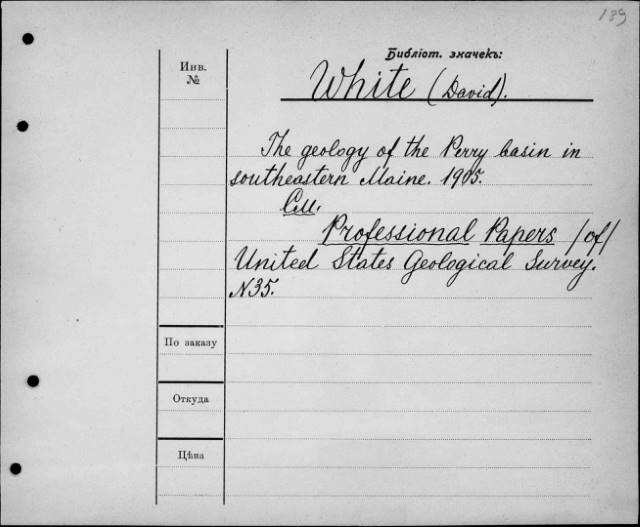 189
Библіот. значекъ:
Инв.
№
White (David).
The geology of the Perry basin in
southeastern Maine. 1905.
См.
Professional Papers /of/
United States Geological Survey.
N35.
По заказу
Откуда
Цѣна